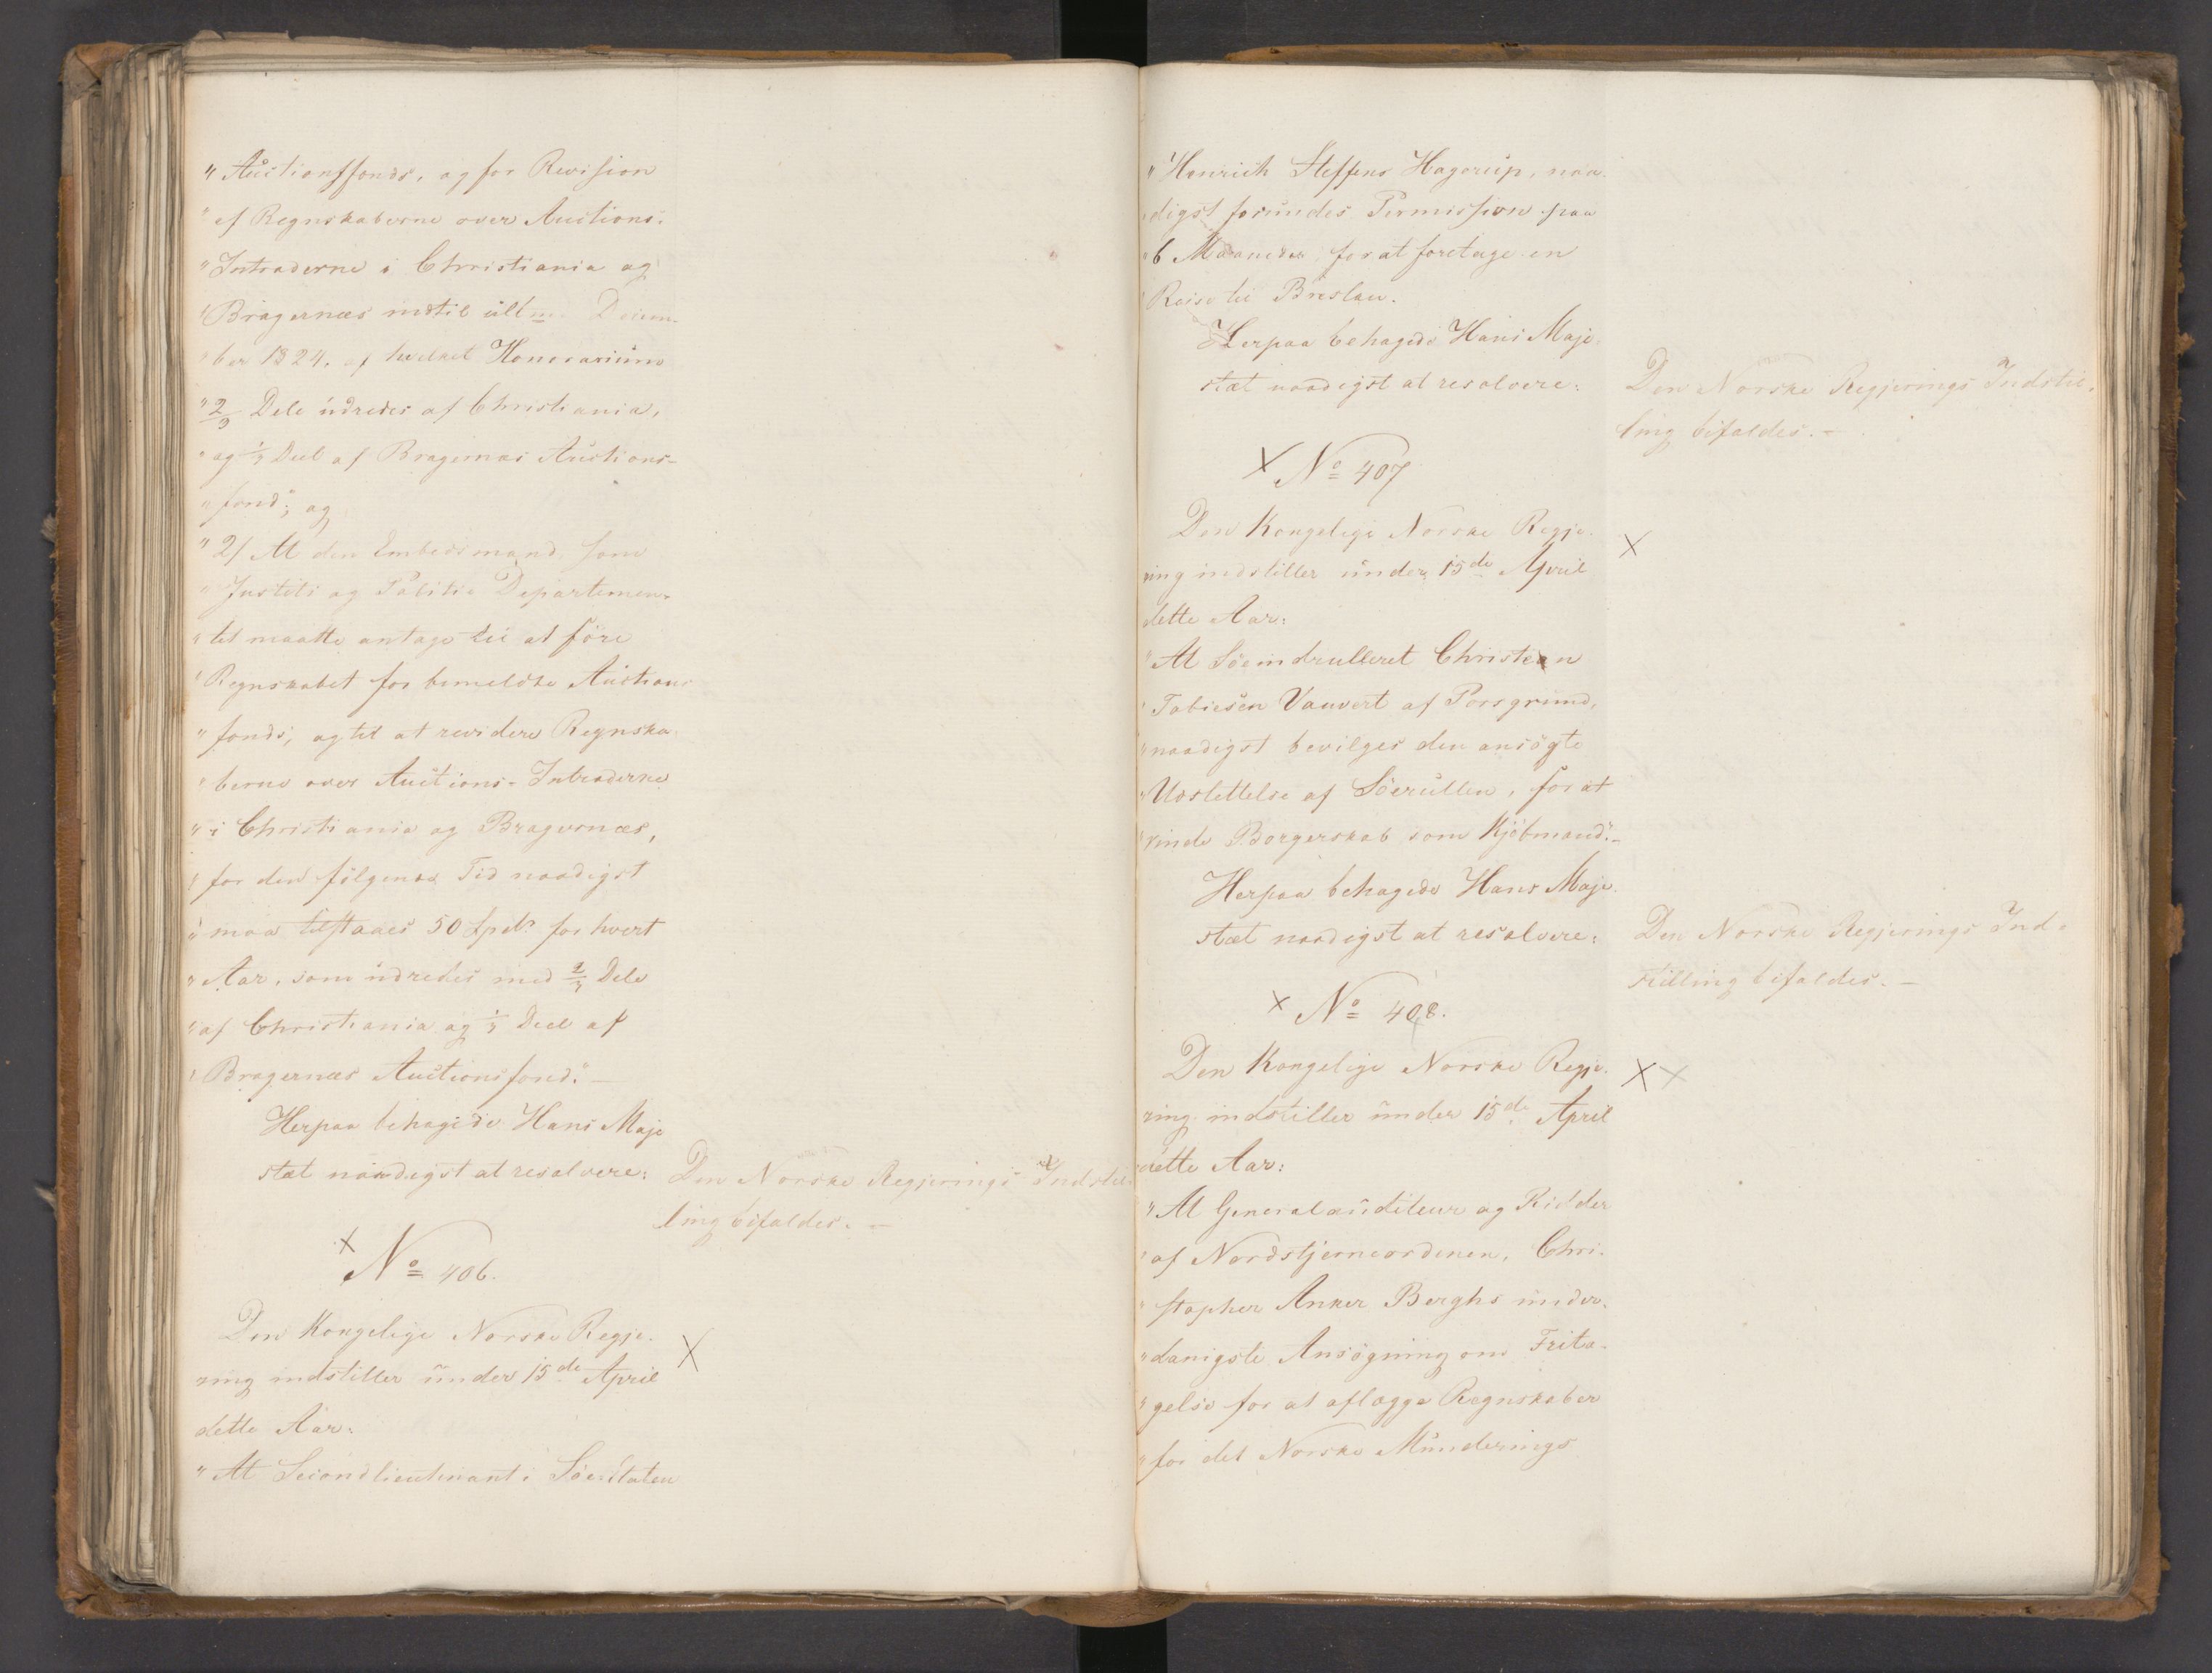 " Auctionsfonds, og for Revision
" af Regnskaberne over Auctions-
" Intraderne i Christiania og
" Bragernæs indtil ultm. Decem-
" ber 1824, af hvilket Honorarium
" 2/3 Dele udredes af Christiania,
" og 1/3 Deel af Bragernæs Auctions-
" fond"; og
" 2/ At den Embedsmand, som
" Justits og Politie Departemen-
" tet maatte antage til at före
" Regnskabet for bemeldte Auctions
" fonds, og til at revidere Regnska-
" berne over Auctions-Intraderne
" i Christiania og Bragernæs,
" for den fölgende Tid naadigst
" maa tilstaaes 50 Spd. for hvert
" Aar, som udredes med 2/3 Dele
" af Christiania og 1/3 Deel af
" Bragernæs Auctionsfond." —
Herpaa behagede Hans Maje
stæt naadigst at resolvere:
Den Norske Regjerings Indstil-
ling bifaldes. —
x
No 406.
Den Kongelige Norske Regje-
ring indstiller under 15de April
dette Aar:
X
" At Secondlieutenant i Söe-Etaten
" Henrich Steffens Hagerup, naa-
" digst forundes Permission paa
" 6 Maaneder for at foretage en
" Reise til Breslau.
Herpaa behagede Hans Maje-
stæt naadigst at resolvere:
Den Norske Regjerings Indstil-
ling bifaldes. —
x No 407
Den Kongelige Norske Regje-
ring indstiller under 15de April
dette Aar:
X
" At Söeindrulleret Christian
" Tobiesen Vauvert af Porsgrund,
" naadigst bevilges den ansögte
" Udslettelse af Söerullen, for at
" vinde Borgerskab som Kjöbmand." —
Herpaa behagede Hans Maje-
stæt naadigst at resolvere:
Den Norske Regjerings Ind-
stilling bifaldes. —
x No 408.
Den Kongelige Norske Regje-
ring indstiller under 15de April
dette Aar:
X X
" At Generalauditeur og Ridder
" af Nordstjerneordenen, Chri-
" stopher Anker Berghs under-
" danigste Ansögning om Frita-
" gelse for at aflægge Regnskaber
" for det Norske Munderings